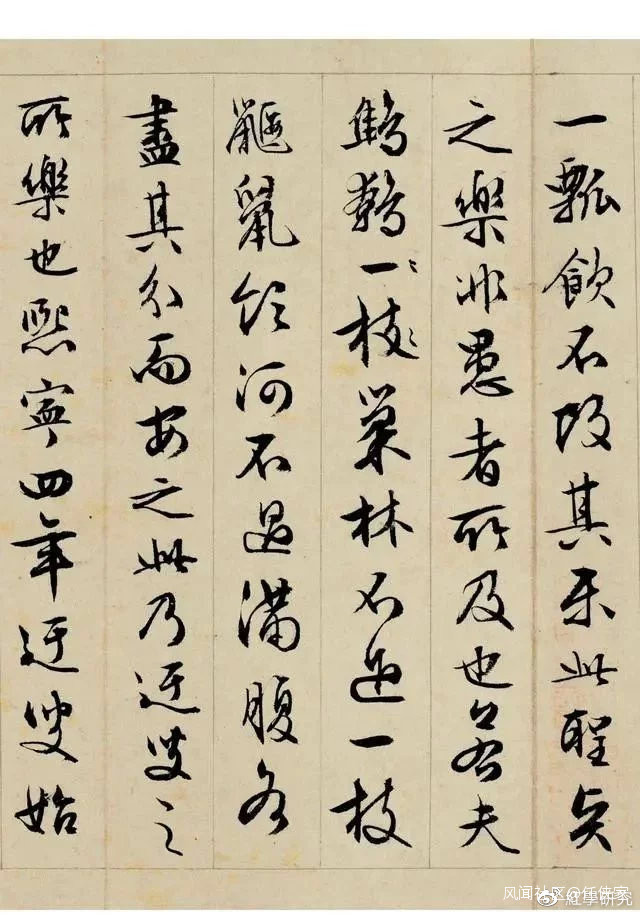 一瓢飲不改其樂此聖賢
之樂非愚者所及也若夫
鷦鷯一枝巢林不過一枝
鼴鼠飲河不過滿腹各
盡其分而安之此乃迂叟之
所樂也熙寧四年迂叟始
风闻社区
@紅學研究